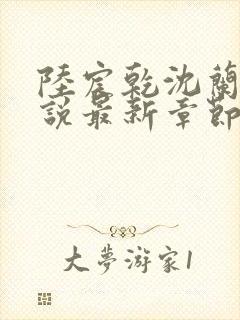 陸宸乾沈蘭
說最新章節
大夢游家1